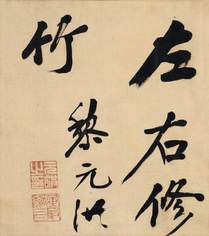 左右修
竹
黎元洪